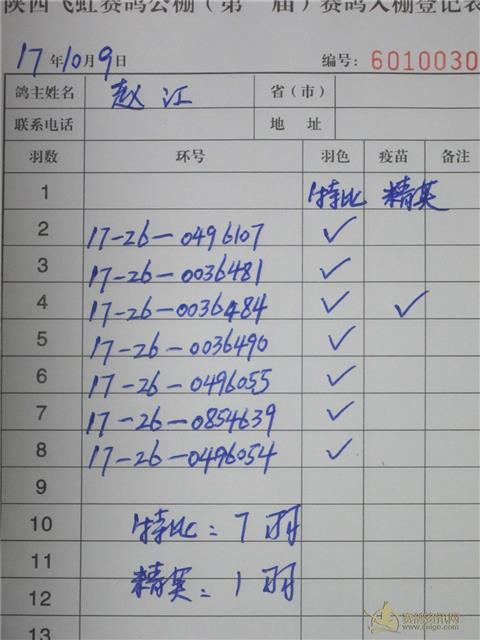 陕西飞虹赛鸽公棚(第 届)赛鸽入棚登记表
17年10月9日 编号: 6010030
鸽主姓名 赵江 省(市)
联系电话 地 址
羽数 环号 羽色 疫苗 备注
1 特比 精英
2 17-26-0496107 ✓
3 17-26-0036481 ✓
4 17-26-0036484 ✓ ✓
5 17-26-0036490 ✓
6 17-26-0496055 ✓
7 17-26-0854639 ✓
8 17-26-0496054 ✓
9
10 特比: 7羽
11
精英: 1羽
12
13
赛鸽资讯网
www.saige.com